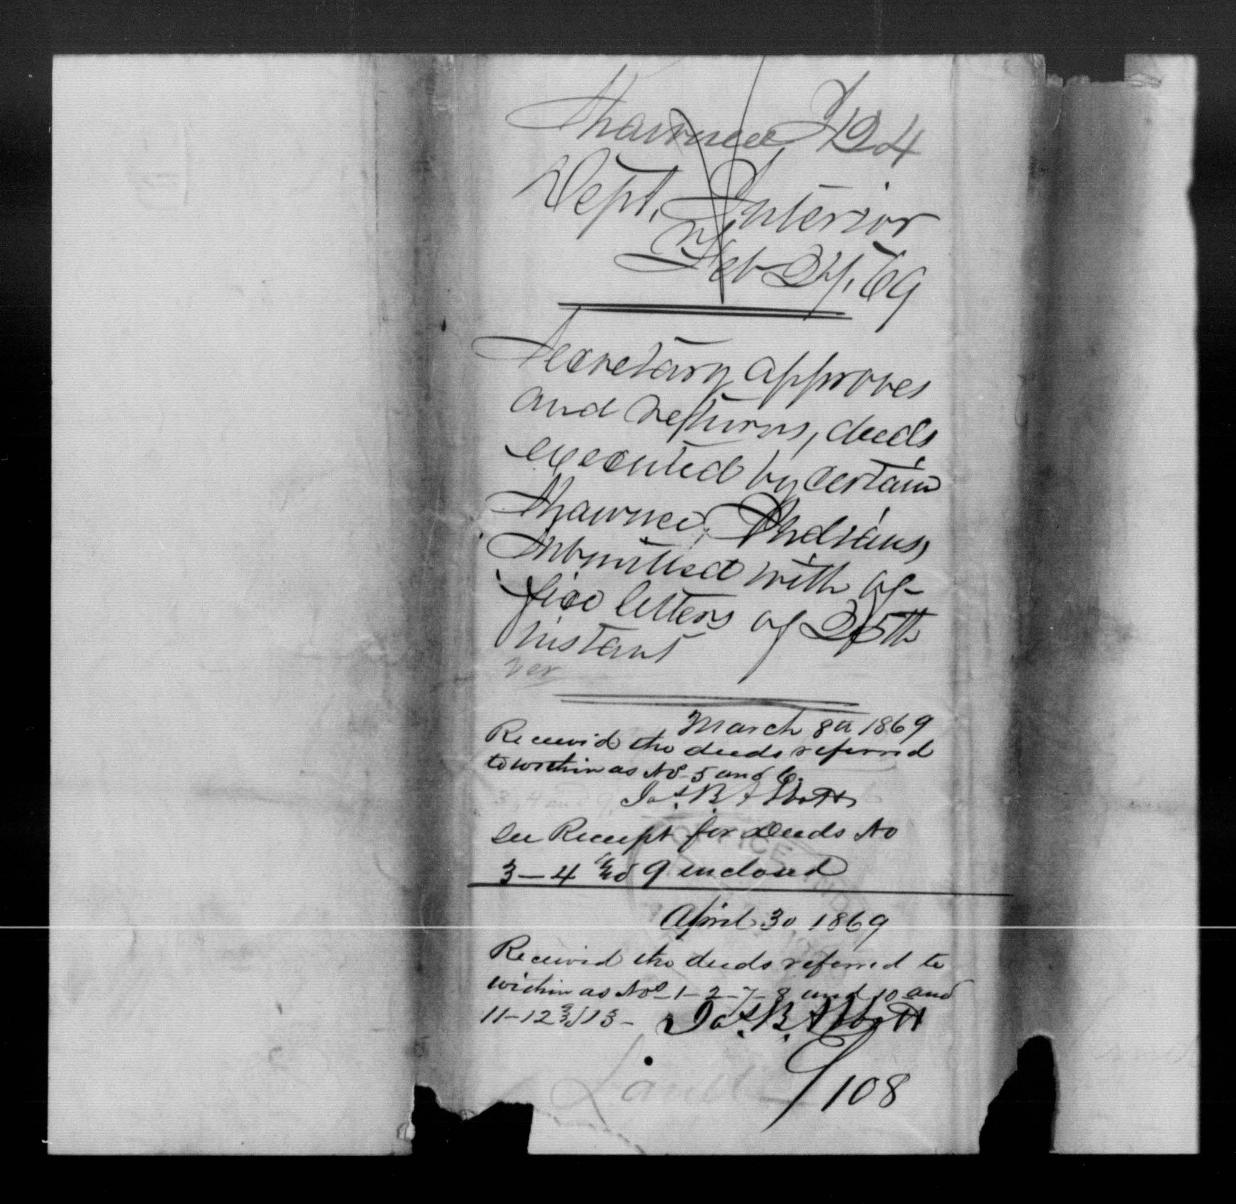 Shawnee I 124
Dept. Interior
Feb 27, 69
Secretary approves
and returns, deeds
executed by certain
Shawnee, Indians,
submitted with of-
fice letters of 25th
instant
March 8th 1869
Received the deeds referred
to within as No 5 and 6.
Jas. B. Abbott
See Receipt for Deeds No
3 – 4 and 9 enclosed
OFFICE IND
April 30, 1869
Received the deeds referred to
within as Nos – 1 – 2 – 7 – 8 and 10 and
11 – 12 and 13 – Jas. B. Abbott
108